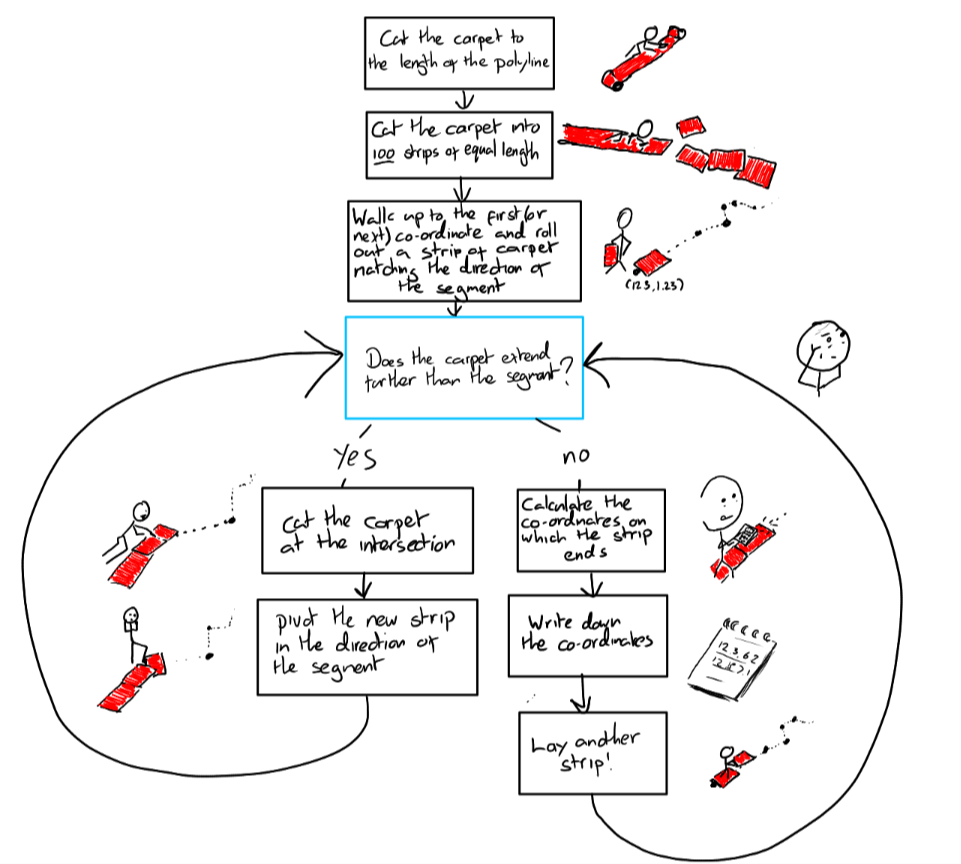 Cut the carpet to
the length of the polyline
Cut the carpet into
100 strips of equal length
Walk up to the first (or
next) co-ordinate and roll
out a strip of carpet
matching the direction of
the segment
(123,1.23)
Does the carpet extend
further than the segment?
Yes
no
Cut the carpet
at the intersection
Calculate the
co-ordnates on
which the strip
ends
pivot the new strip
in the direction of
the segment
Write down
the co-ordinates
123.62
Lay another
strip!